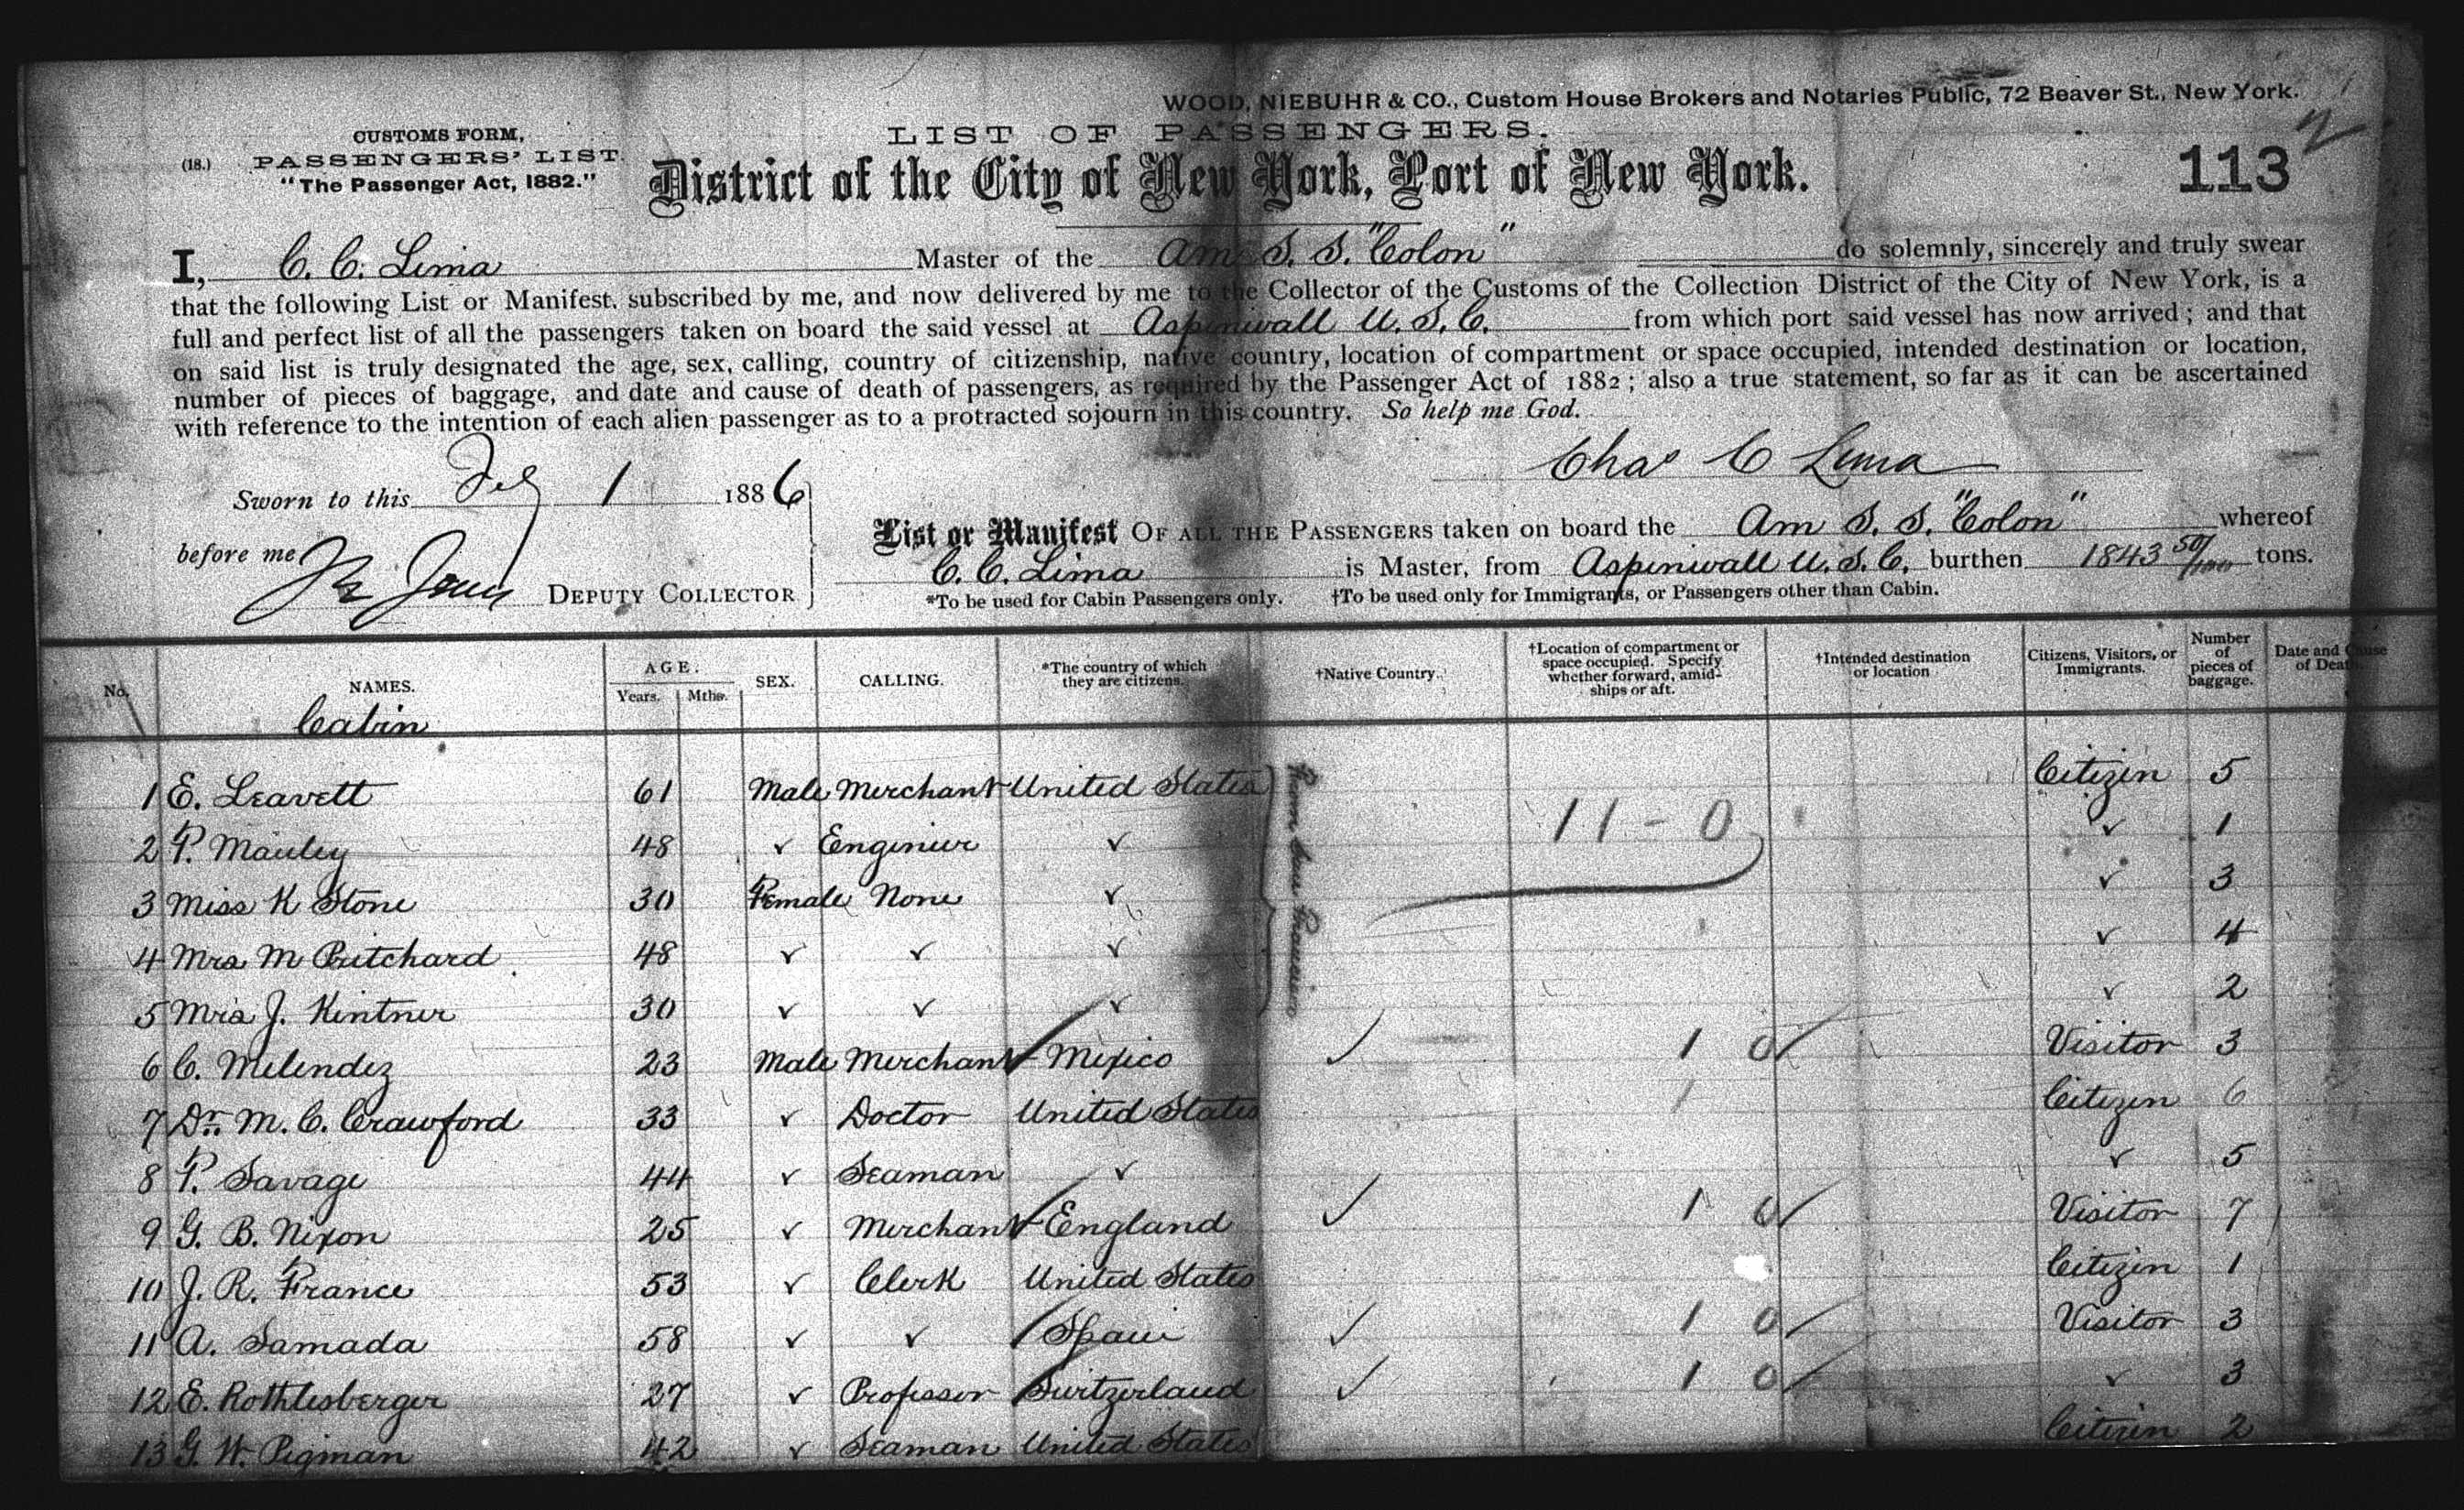 WOOD, NIEBUHR & CO., Custom House Brokers and Notaries Public, 72 Beaver St., New York.
CUSTOMS FORM,
(18.) PASSENGERS' LIST.
"The Passenger Act, 1882."
LIST OF PASSENGERS.
District of the City of New York, Port of New York.
113
I, C. C. Lima Master of the Am S. S. "Colon" do solemnly, sincerely and truly swear
that the following List or Manifest, subscribed by me, and now delivered by me to the Collector of the Customs of the Collection District of the City of New York, is a
full and perfect list of all the passengers taken on board the said vessel at Aspinwall U. S. C. from which port said vessel has now arrived; and that
on said list is truly designated the age, sex, calling, country of citizenship, native country, location of compartment or space occupied, intended destination or location,
number of pieces of baggage, and date and cause of death of passengers, as required by the Passenger Act of 1882; also a true statement, so far as it can be ascertained
with reference to the intention of each alien passenger as to a protracted sojourn in this country. So help me God.
Chas C Lima
Sworn to this Feb 1 1886
before me
DEPUTY COLLECTOR
List or Manifest OF ALL THE PASSENGERS taken on board the Am S. S. "Colon" whereof
C. C. Lima is Master, from Aspinwall U. S. C. burthen 1843 50/100 tons.
*To be used for Cabin Passengers only. †To be used only for Immigrants, or Passengers other than Cabin.
No. NAMES. AGE. Years. Mths. SEX. CALLING. *The country of which they are citizens. †Native Country. †Location of compartment or space occupied. Specify whether forward, amidships or aft. †Intended destination or location Citizens, Visitors, or Immigrants. Number of pieces of baggage. Date and Cause of Death.
Cabin
1 E. Leavett 61 Male Merchant United States Citizen 5
2 P. Mauley 48 ✓ Engineer ✓ ✓ 1
11 - 0
3 Miss K Stone 30 Female None ✓ ✓ 3
4 Mrs M Pritchard 48 ✓ ✓ ✓ ✓ 4
5 Mrs J. Kintner 30 ✓ ✓ ✓ ✓ 2
From San Francisco
6 C. Melendez 23 Male Merchant ✓ Mexico ✓ 1 0 ✓ Visitor 3
7 Dr. M. C. Crawford 33 ✓ Doctor United States Citizen 6
8 P. Savage 44 ✓ Seaman ✓ ✓ 5
9 G. B. Nixon 25 ✓ Merchant ✓ England ✓ 1 0 ✓ Visitor 7
10 J. R. France 53 ✓ Clerk United States Citizen 1
11 A. Samada 58 ✓ ✓ Spain ✓ 1 0 ✓ Visitor 3
12 E. Rothlesberger 27 ✓ Professor Switzerland ✓ 1 0 ✓ ✓ 3
13 G. W. Pigman 42 ✓ Seaman United States Citizen 2